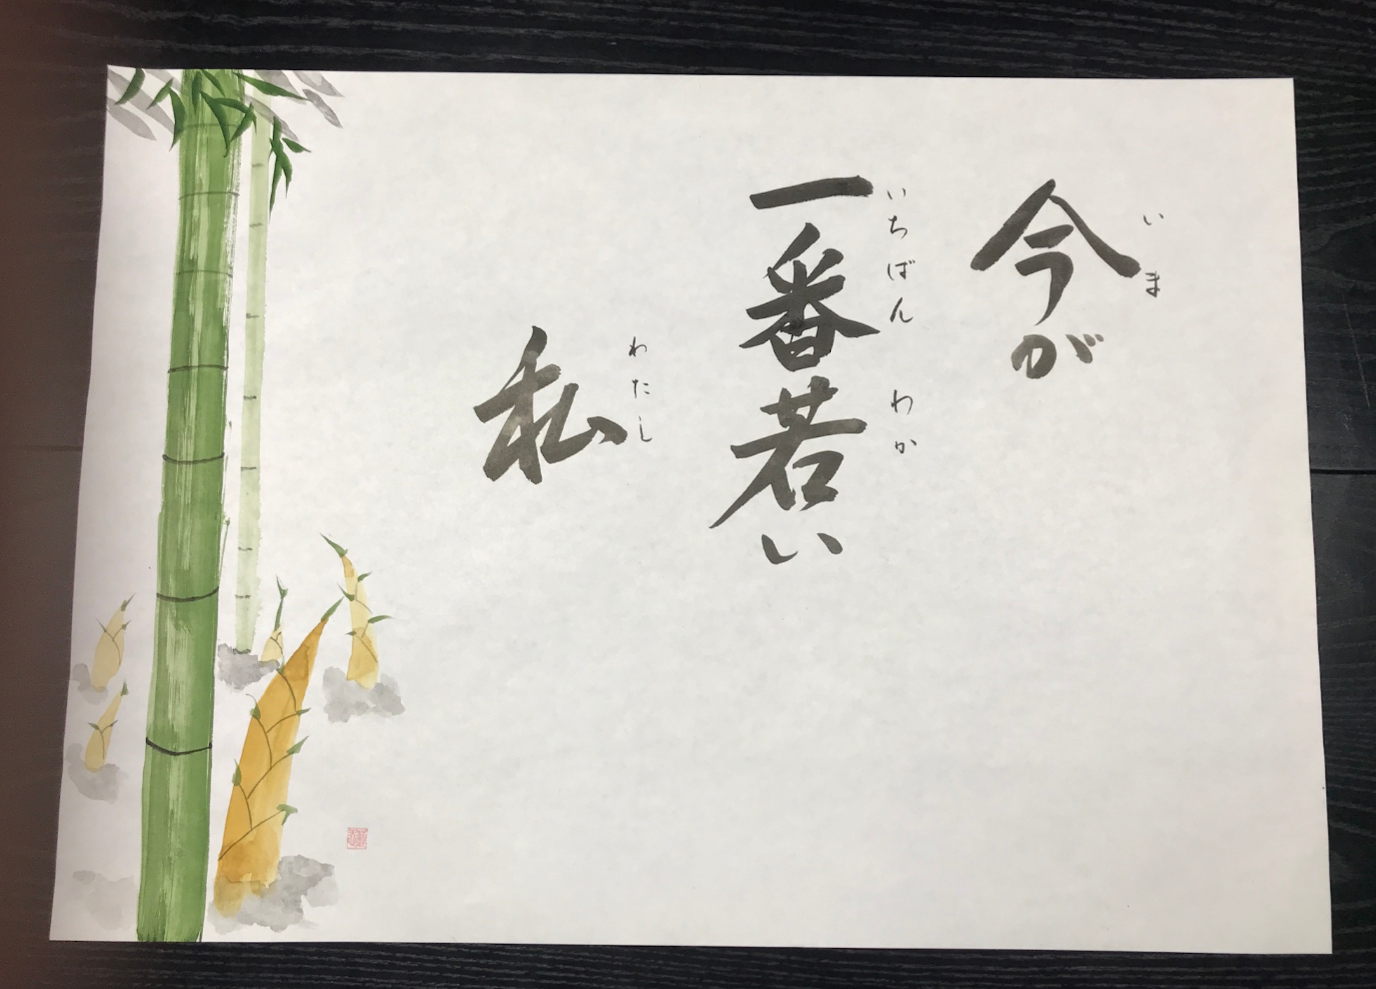 今が
いま
一番若い
いちばん わか
私
わたし